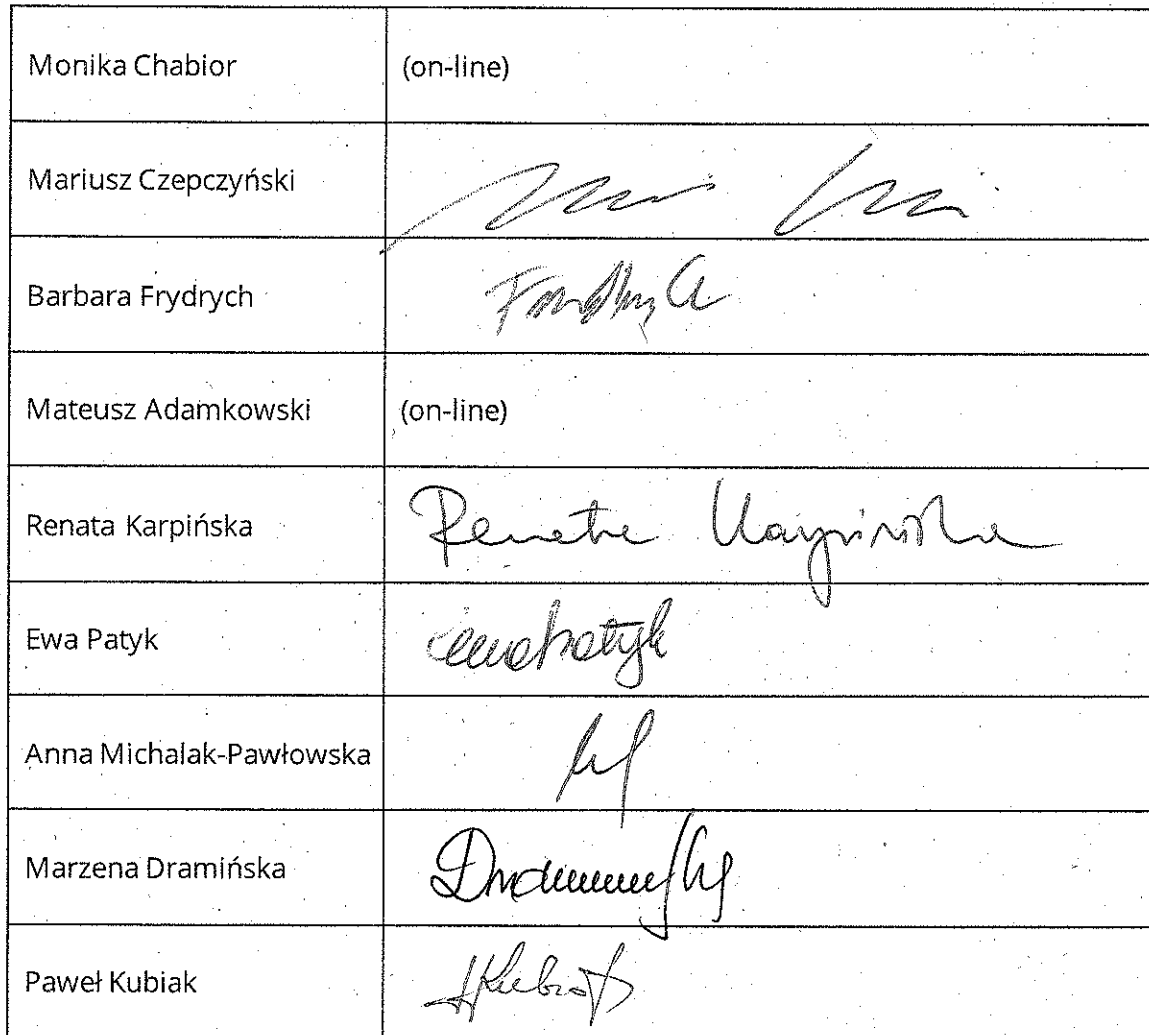 Monika Chabior (on-line)
Mariusz Czepczyński
Barbara Frydrych
Mateusz Adamkowski (on-line)
Renata Karpińska Renata Karpińska
Ewa Patyk Ewa Patyk
Anna Michalak-Pawłowska
Marzena Dramińska
Paweł Kubiak Kubiak